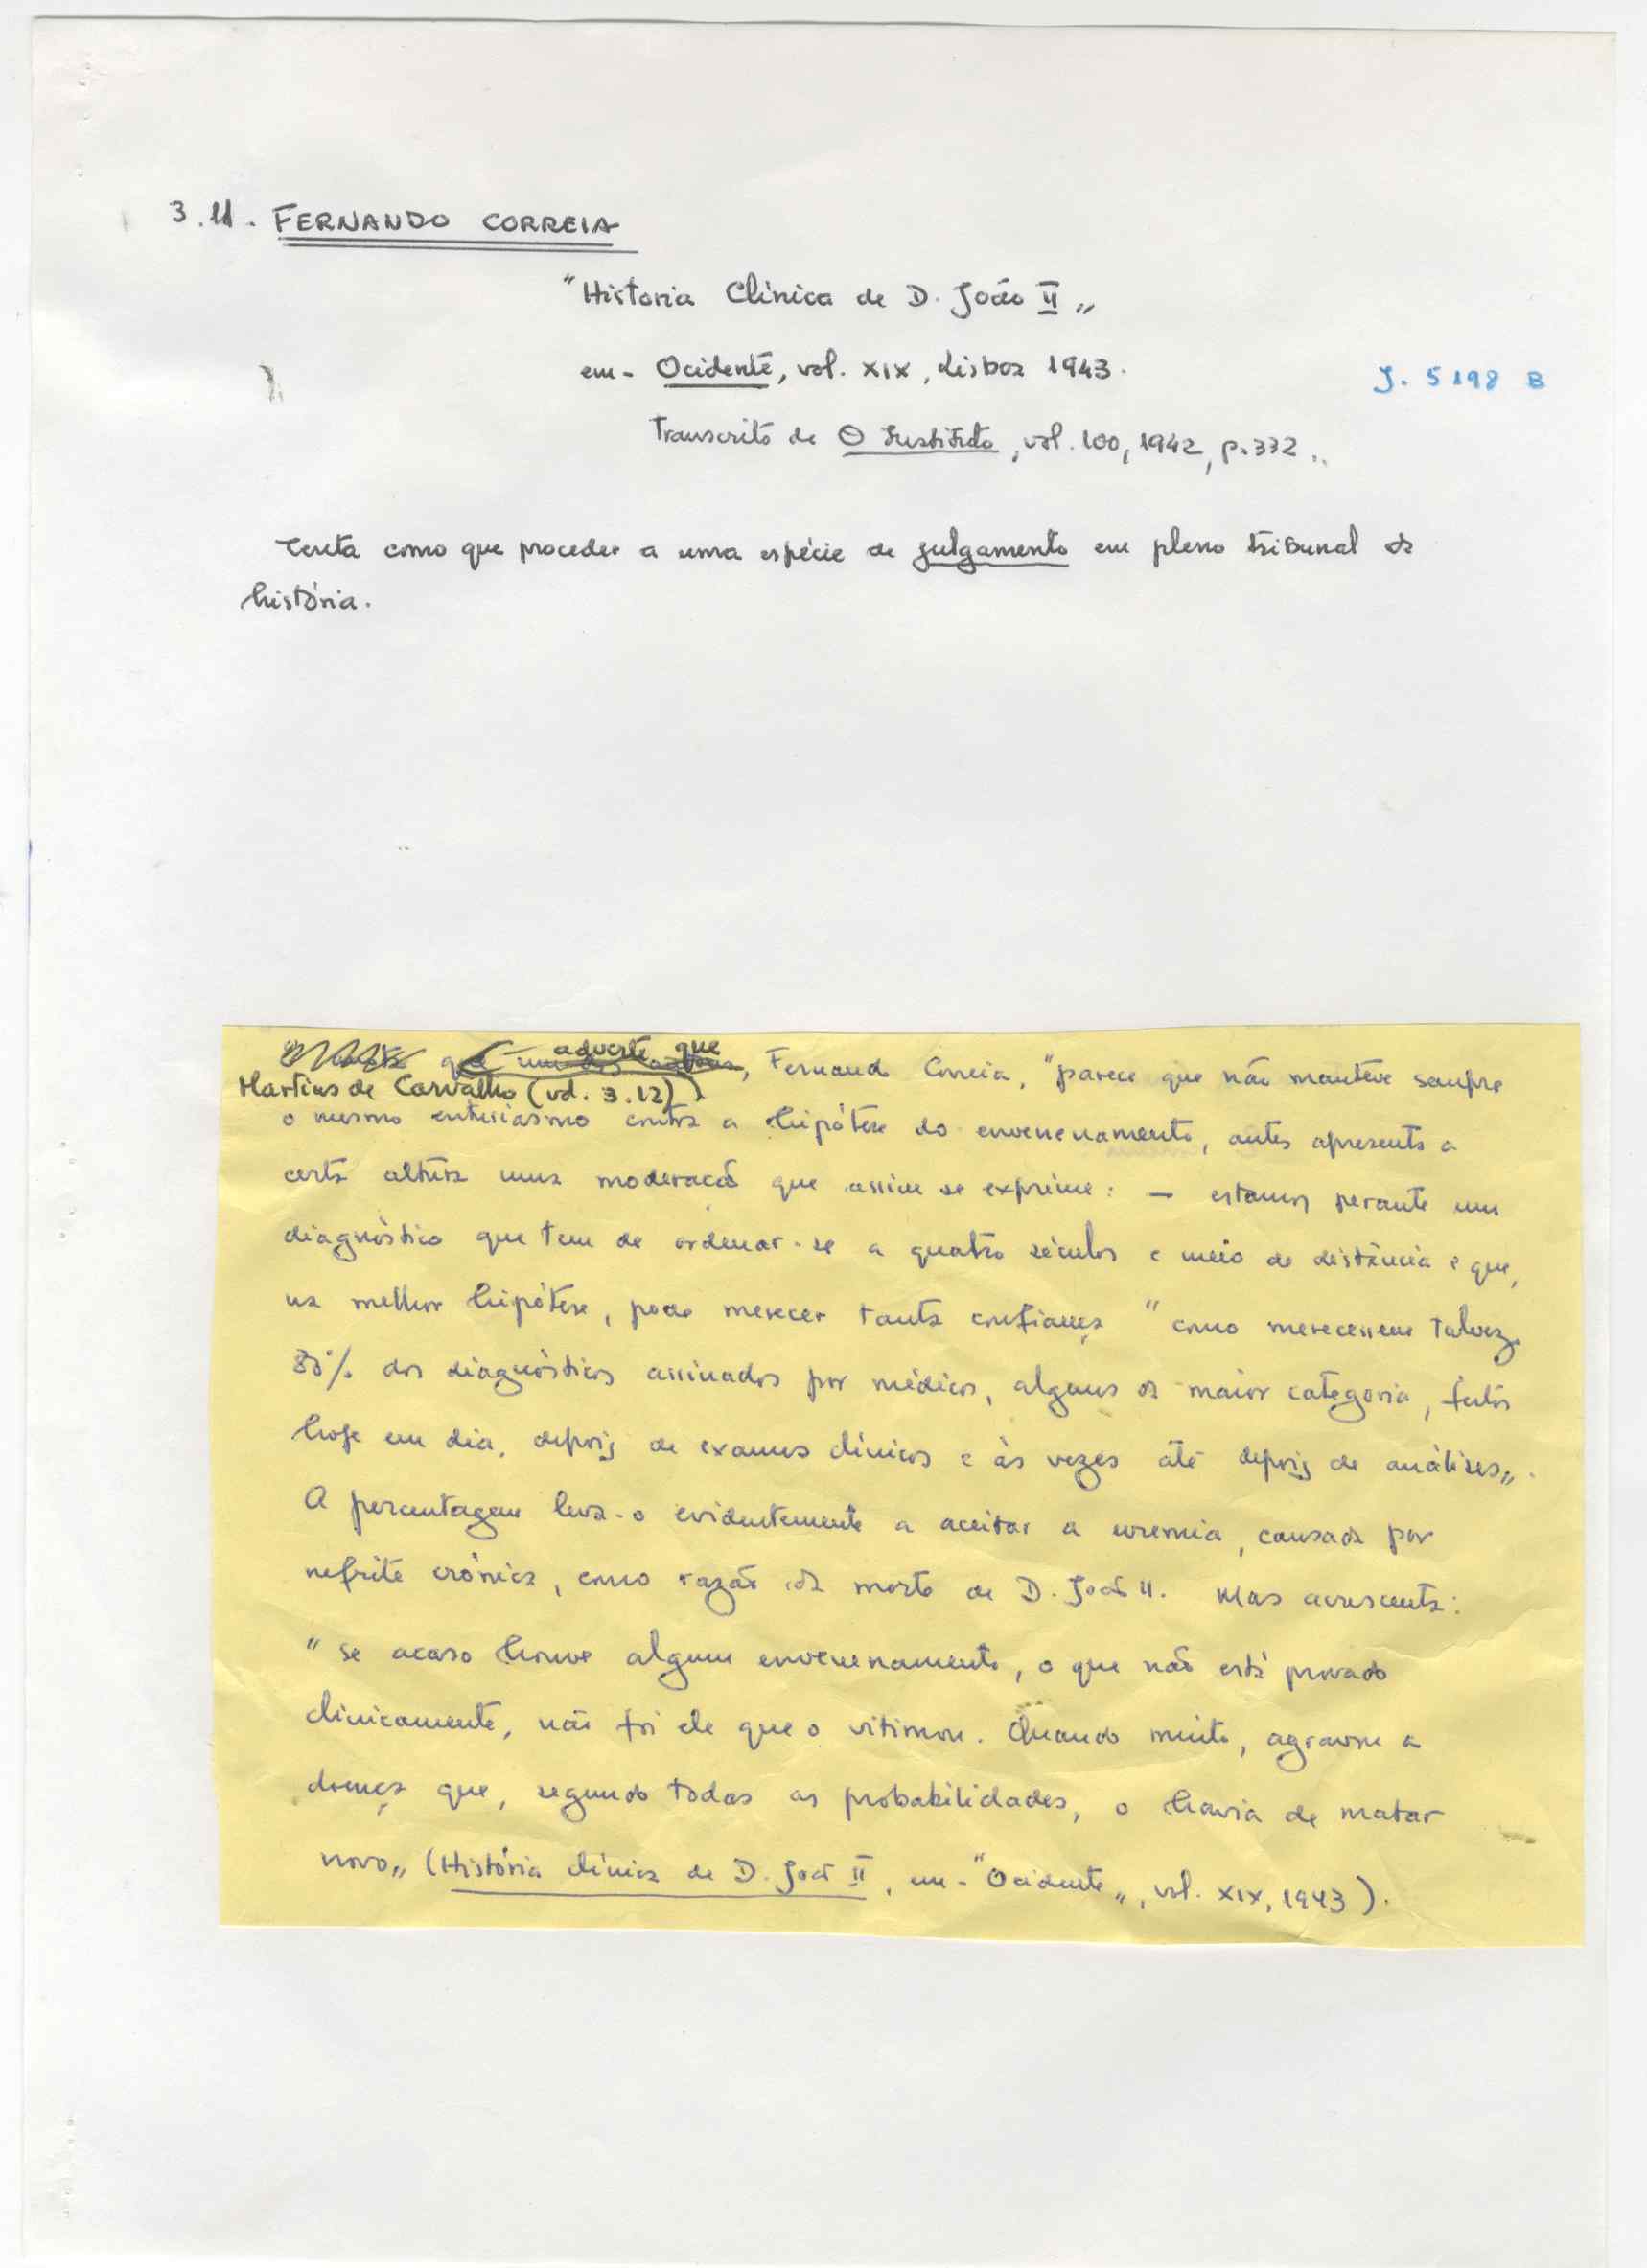 3.11. FERNANDO CORREIA
"Historia Clínica de D. João II"
em - Ocidente, vol. XIX, Lisboa 1943.
J. 5198 B
Transcrito de O Instituto, vol. 100, 1942, p. 332..
Tenta como que proceder a uma espécie de julgamento em pleno tribunal da
história.
adverte que
que, Fernando Correia, "parece que não manteve sempre
Martins de Carvalho (vd. 3.12)
o mesmo entusiasmo contra a hipótese do envenenamento, antes apresenta a
certa altura uma moderação que assim se exprime: - estamos perante um
diagnóstico que tem de ordenar-se a quatro séculos e meio de distância e que,
na melhor hipótese, pode merecer tanta confiança "como merecessem talvez
80% dos diagnósticos assinados por médicos, alguns de maior categoria, feitos
hoje em dia, depois de exames clínicos e às vezes até depois de análises".
A percentagem leva-o evidentemente a aceitar a uremia, causada por
nefrite crónica, como razão da morte de D. João II. Mas acrescenta:
"se acaso houve algum envenenamento, o que não está provado
clinicamente, não foi ele que o vitimou. Quando muito, agravou a
doença que, segundo todas as probabilidades, o havia de matar
novo" (História clínica de D. João II, em - "Ocidente", vol. XIX, 1943).